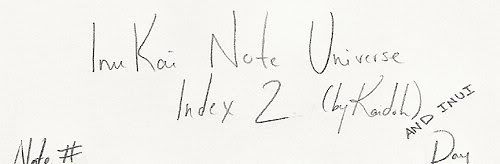 InuKai Note Universe
Index 2 (by Kaidoh)
AND INUI
Note #
Day